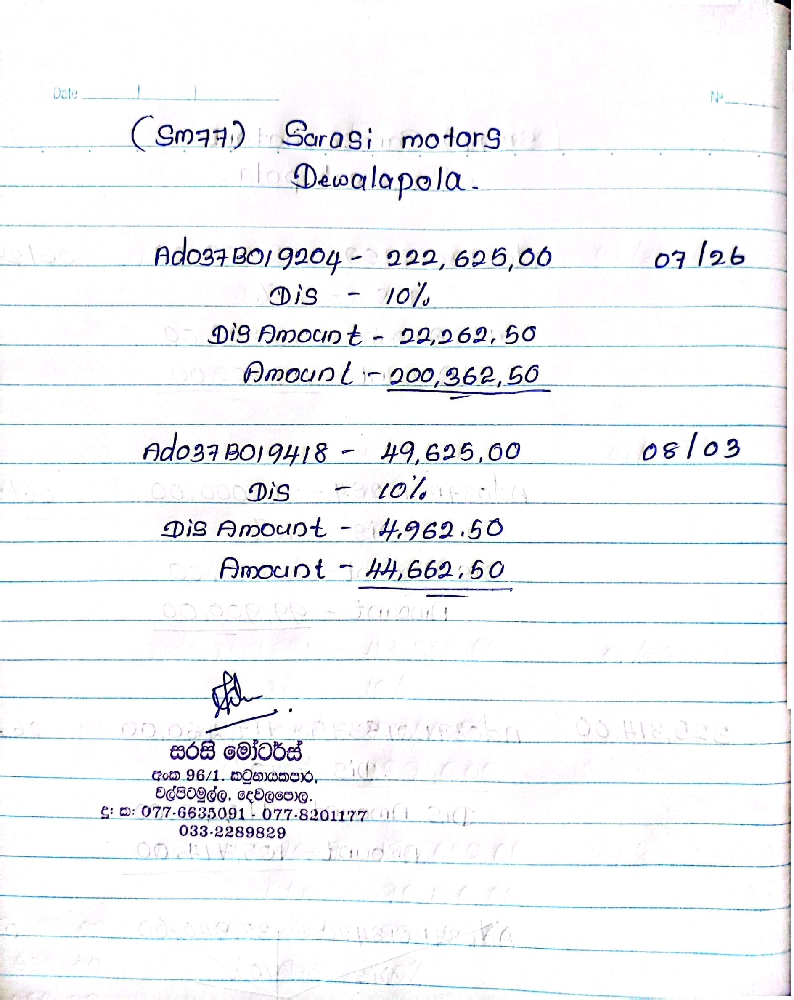 Date
No
(SM77) Sarasi motors
Dewalapola.
Ad037B019204 - 222,625,00 07/26
Dis - 10%
Dis Amount - 22,262.50
Amount - 200,362,50
Ad037B019418 - 49,625,00 08/03
Dis - 10%
Dis Amount - 4,962.50
Amount - 44,662.50
සරසි මෝටර්ස්
අංක 96/1. කටුනායකපාර,
වල්පිටමුල්ල, දේවලපොල.
දු: ක: 077-6635091 - 077-8201177
033-2289829